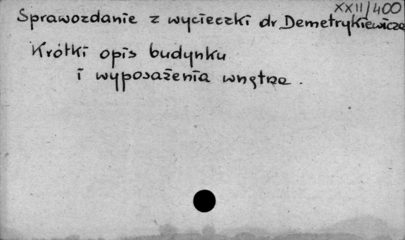 XXII/400
Sprawozdanie z wycieczki dr Demetrykiewicza
Krótki opis budynku
i wyposażenia wnętrz.